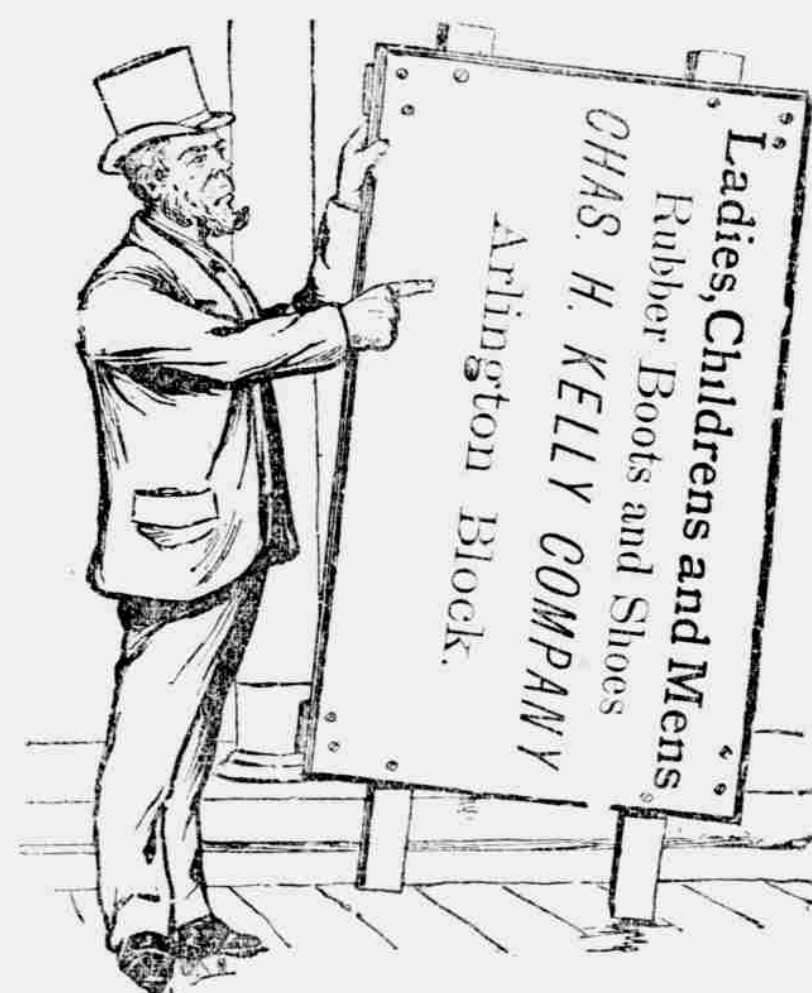 Ladies, Childrens and Mens
Rubber Boots and Shoes
CHAS. H. KELLY COMPANY
Arlington Block.